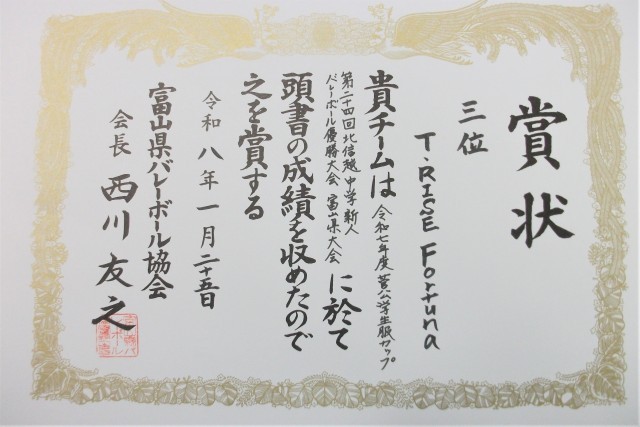 賞状
三位
T・RISE Fortuna
貴チームは令和七年度菅公学生服カップ
第二十四回北信越中学新人
バレーボール優勝大会 富山県大会
に於て
頭書の成績を収めたので
之を賞する
令和八年一月二十五日
富山県バレーボール協会
会長 西川友之